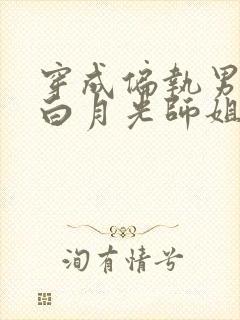 穿成偏執男
白月光師姐
洵有情兮